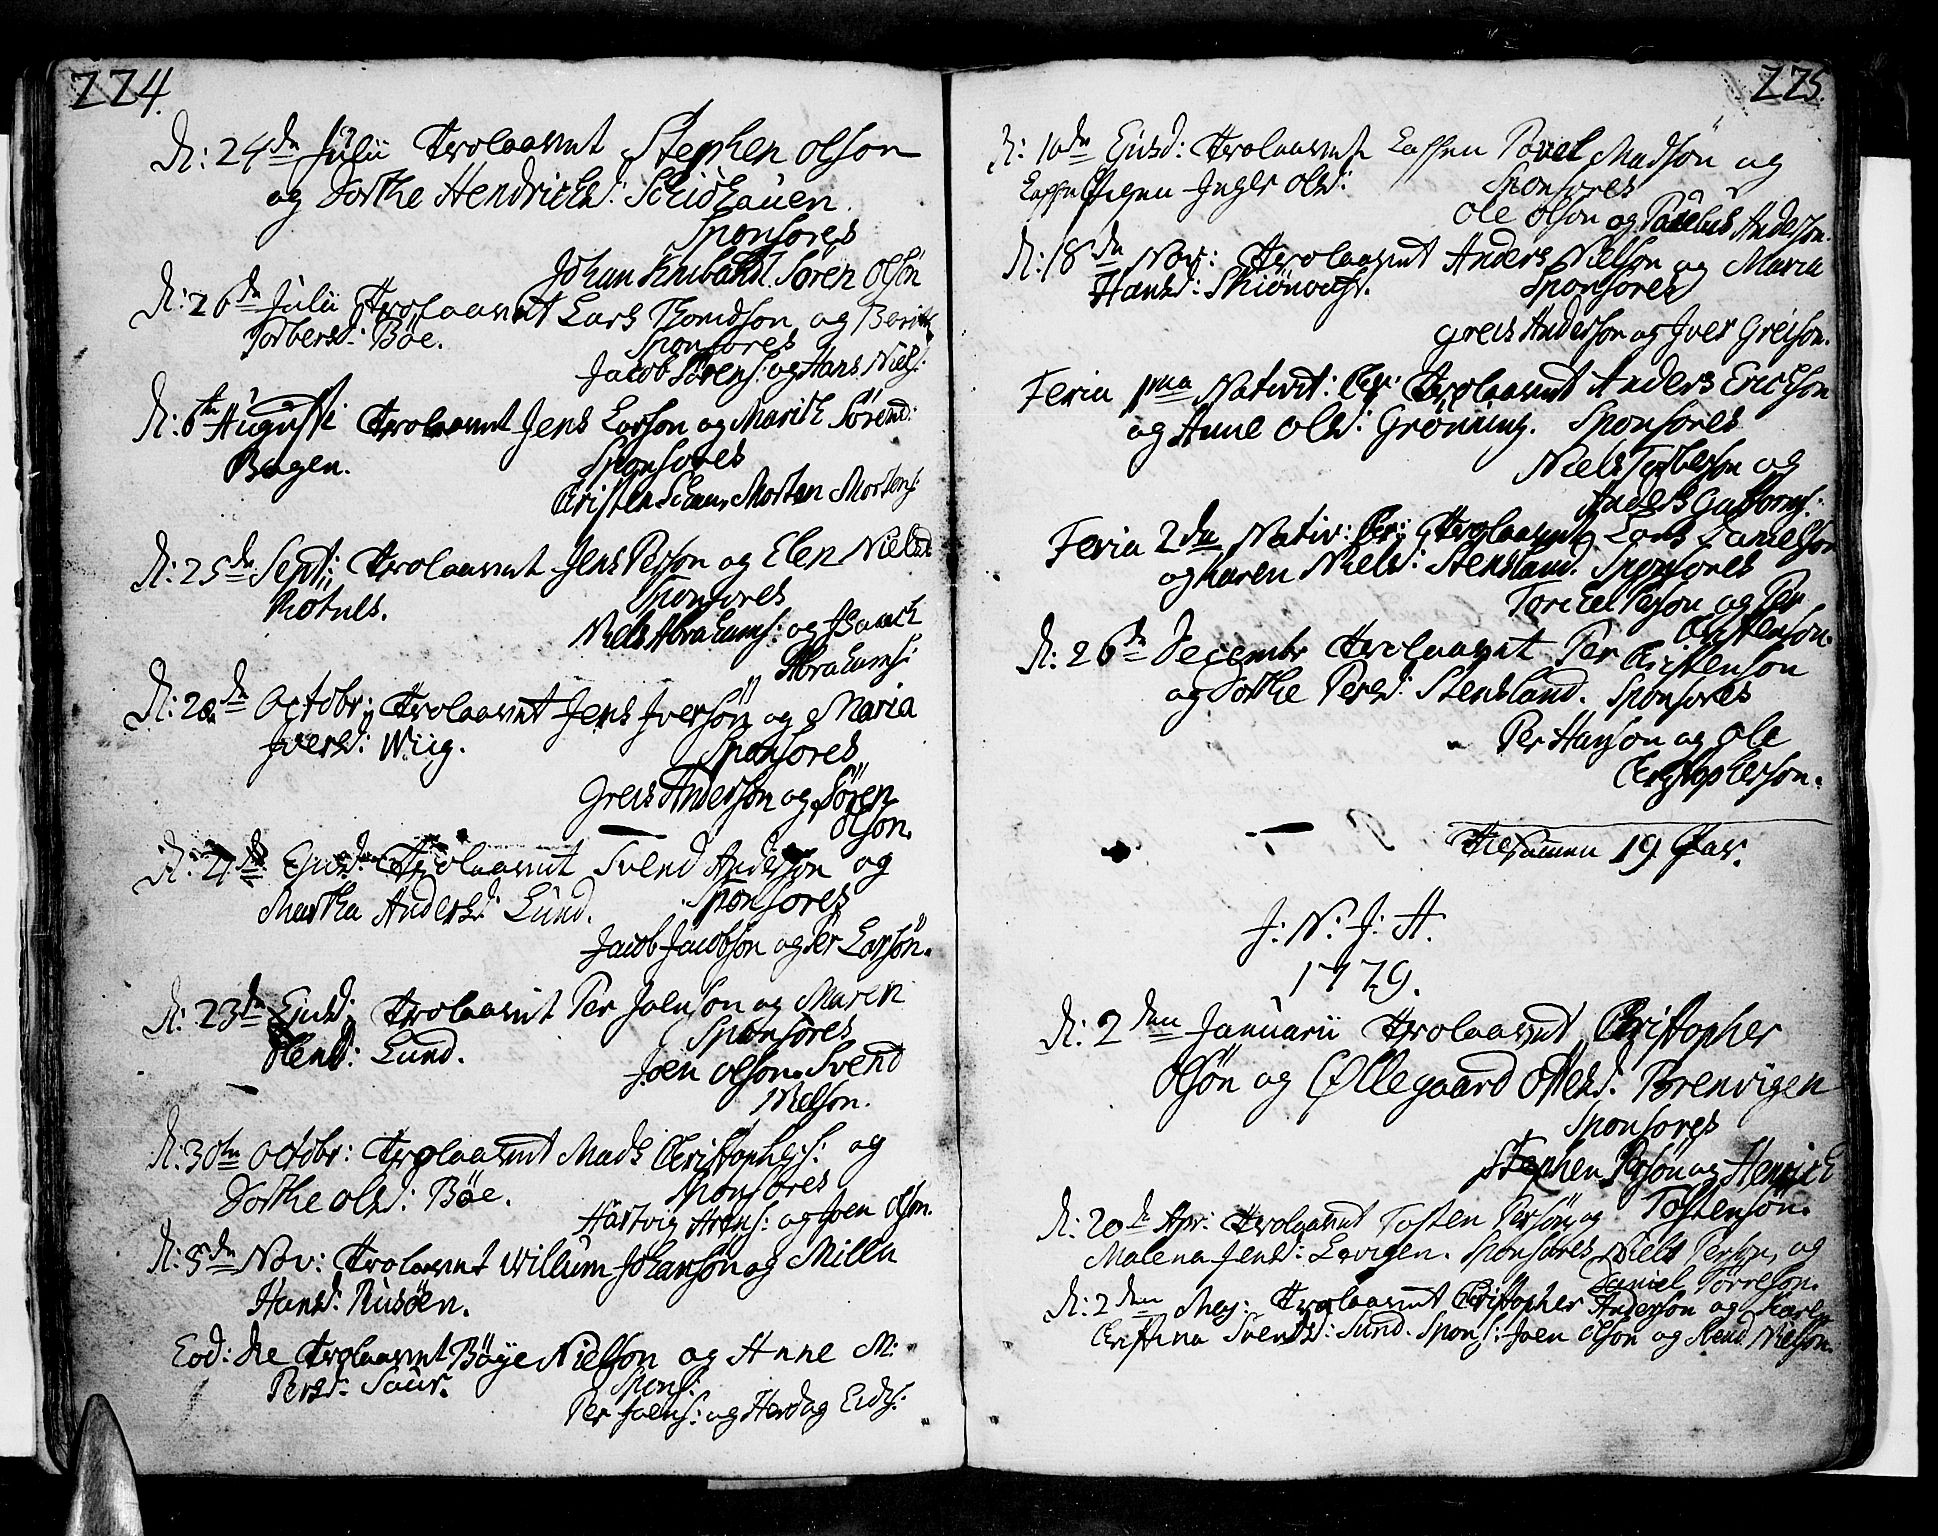 224.
D: 24de Julii Trolaavet Stephen Olson
og Dorthe Hendrichsd:
Sponsores
Johan Søren Olsøn
D: 26de Julii Trolaavet Lars Thomdson og Berith
Torbersd: Bøe.
Sponsores
Jacob Sørens: og Hans Niels:
D: 6te Augusti Trolaavet Jens Larson og Marith Sørensd:
Bogen.
Sponsores
Christen Morten Mortens:
D: 25de Sept: Trolaavet Jens Person og Elen Nielsd
Røtnes.
Sponsores
Niels Abrahams: og Isaach
Abrahams:
D: 20de Octobr: Trolaavet Jens Iversøn og Maria
Iversd: Wiig.
Sponsores
Greis Anderson og Søren
Olson.
D: 21de Ejusd: Trolaavet Svend Anderson og
Martha Andersd: Lund.
Sponsores
Jacob Jacobson og Per Larsøn.
D: 23de Ejusd: Trolaavet Per Joenson og Maren
Olensd: Lund.
Sponsores
Joen Olson Svend
Nielson.
D: 30te Octobr: Trolaavet Mads Christophers: og
Dorthe Olsd: Bøe.
Sponsores
Hartvig Arens: og Joen Olson.
D: 5de Nov: Trolaavet Willum Johanson og Milla
Hansd: Rusøen.
Eod: die Trolaavet Bøye Nielson og Anne M:
Persd: Saur.
Spons:
Per Joens: og Herdag Eids:
225.
D: 10de Ejusd: Trolaavet Lappen Povel Madsøn og
Lappe Pigen Inger Olsd:
Sponsores
Ole Olson og Povelus Anderson.
D: 18de Nov: Trolaavet Anders Nielson og Maria
Hansd:
Sponsores
Greis Anderson og Iver Greison.
Feria 1ma Nativit: Chr: Trolaavet Anders Erickson
og Anne Olsd: Grøning. Sponsores
Niels Torberson og
Anders Guttorms:
Feria 2da Nativ: Chr: Trolaavet Lars Danielson
og Karen Nielsd: Stensland. Sponsores
Torckel Person og Per
Christenson.
D: 26de Decembr Trolaavet Per Christenson
og Dorthe Persd: Stensland. Sponsores
Per Hanson og Ole
Christopherson.
Tilsammen 19 Par.
J: N: J: A.
1779.
D: 2den Januarii Trolaavet Christopher
Olsøn og Øllegaard Ottesd: Brenvigen
Sponsores
Stephen Persøn og Henrich
Tostensøn.
D: 20de Apr: Trolaavet Tosten Persøn og
Malena Jensd: Lervigen. Sponsores Niels Person, og
Daniel Tørreson.
D: 2den May: Trolaavet Christopher Anderson og Karen
Christina Svendsd: Sund. Spons: Joen Olson og Svend Nielson.